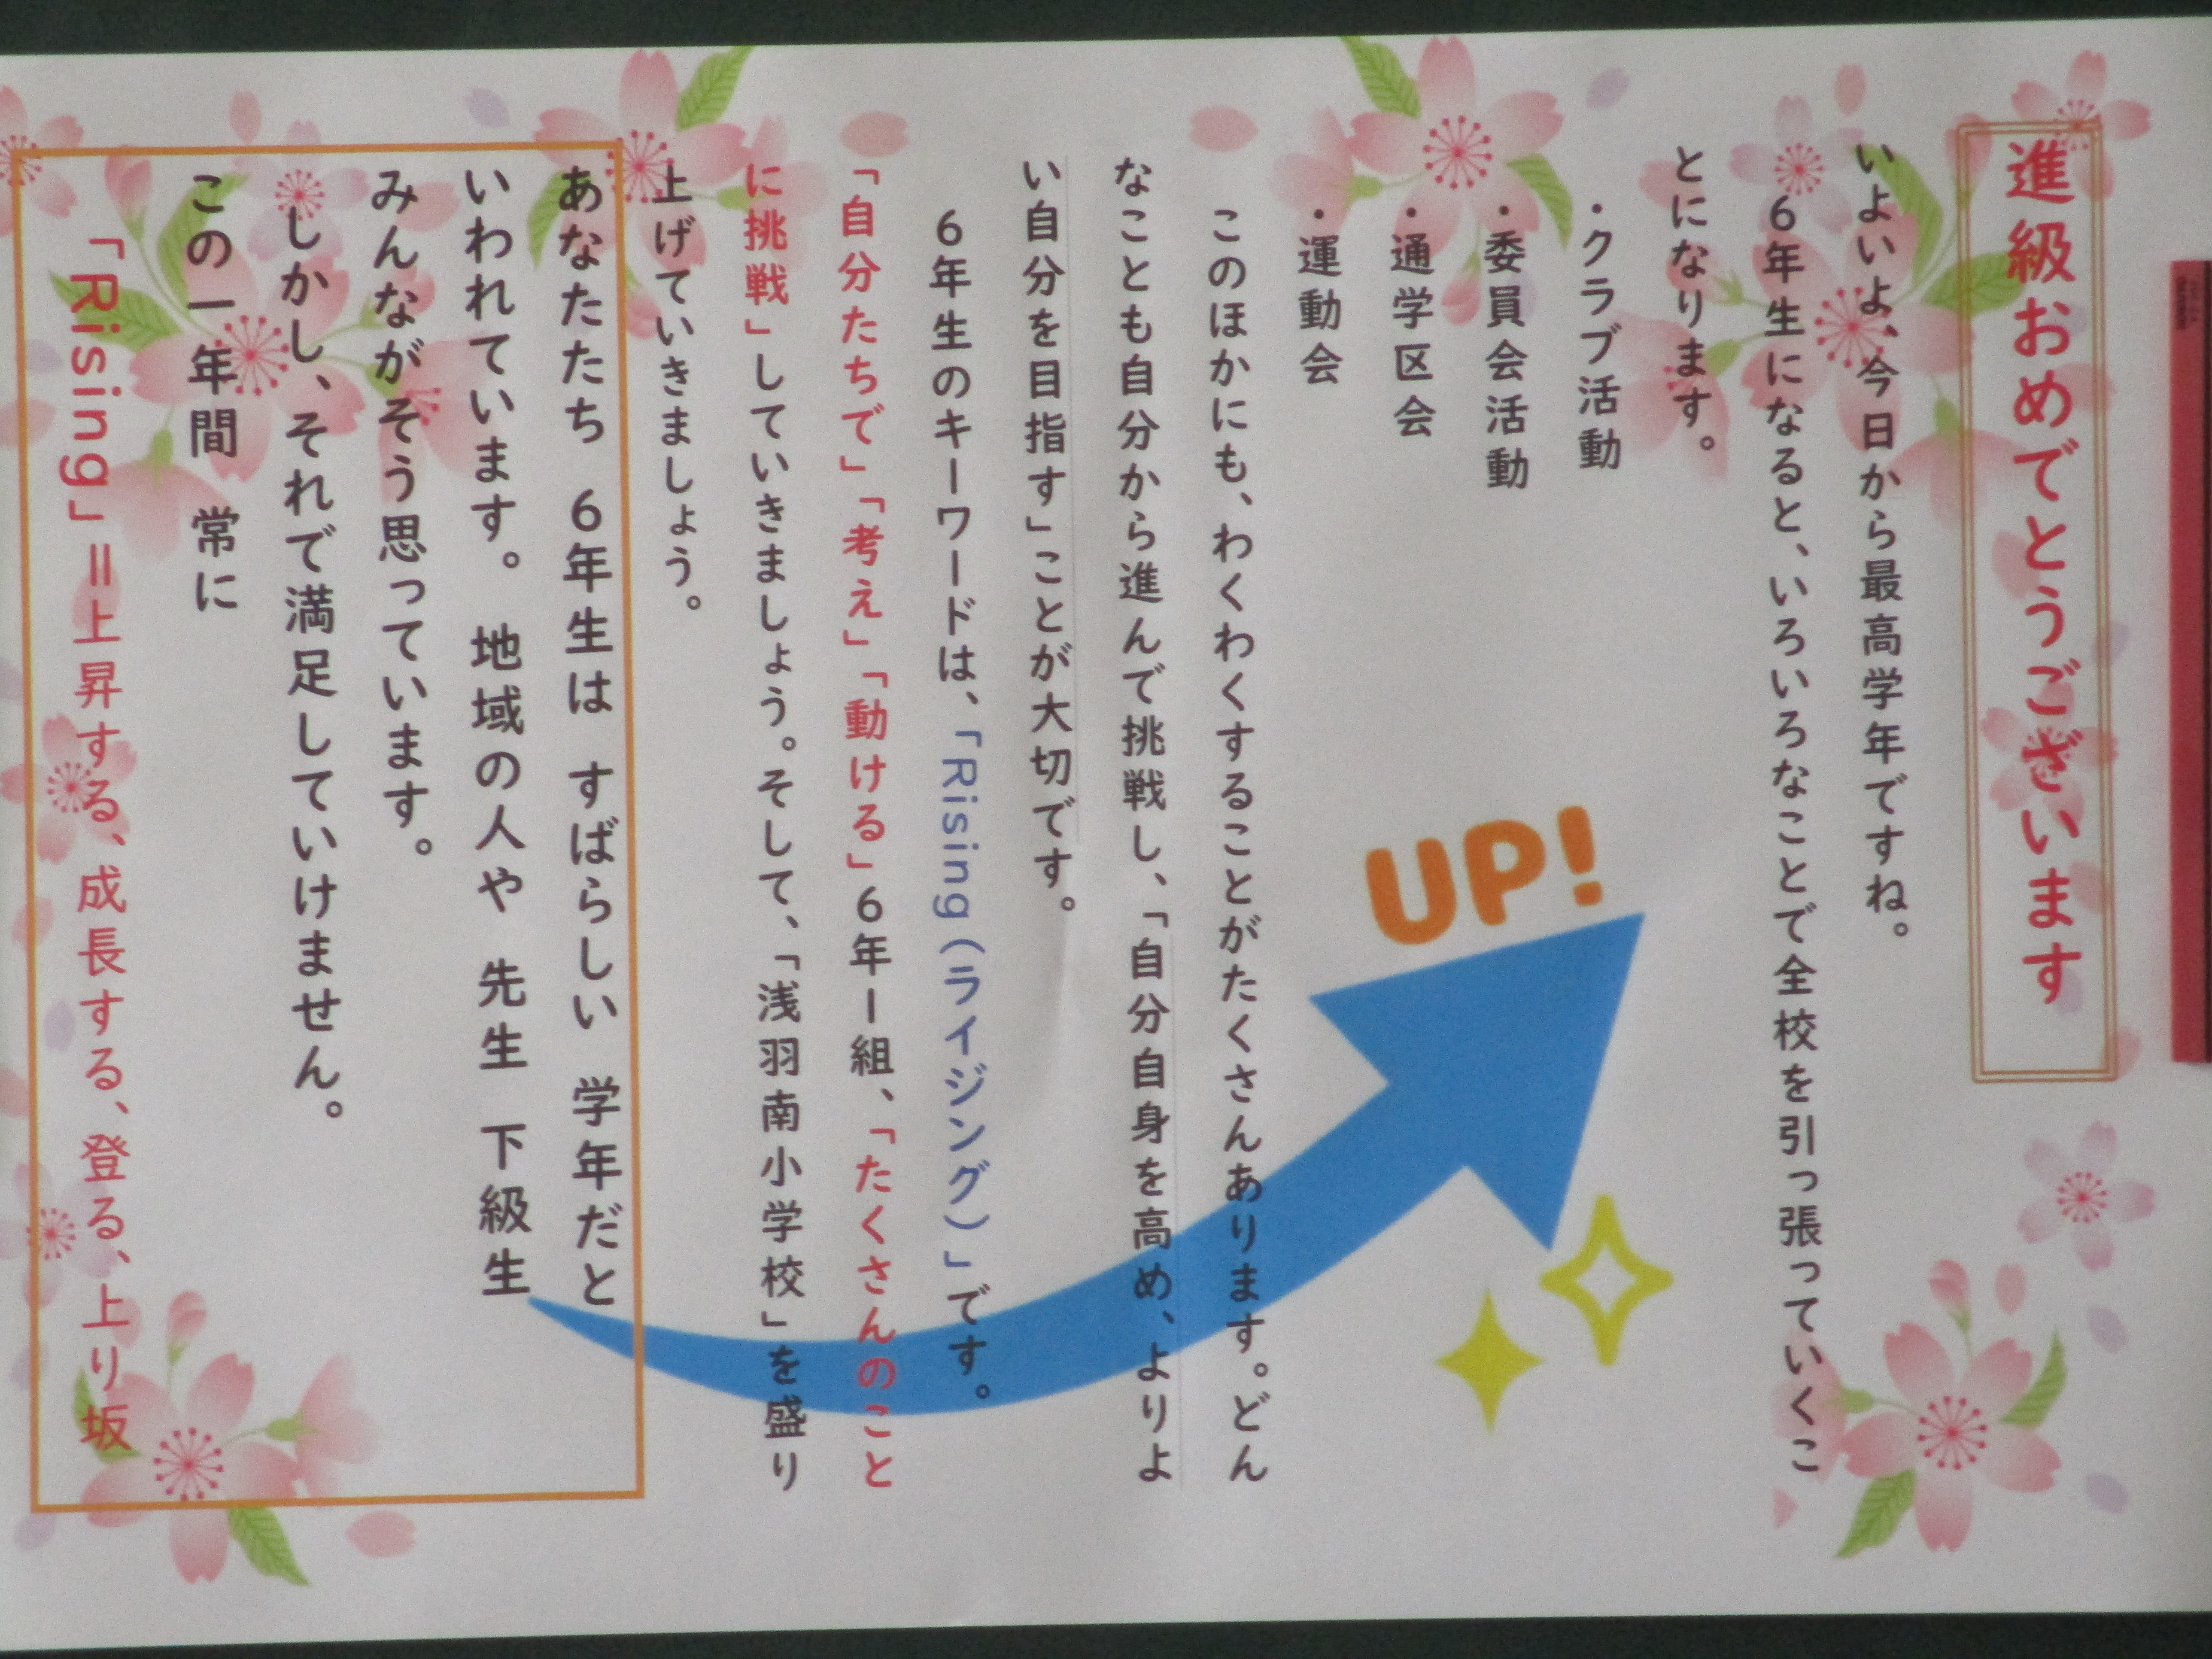 進級おめでとうございます
いよいよ、今日から最高学年ですね。
6年生になると、いろいろなことで全校を引っ張っていくこ
とになります。
・クラブ活動
・委員会活動
・通学区会
・運動会
このほかにも、わくわくすることがたくさんあります。どん
なことも自分から進んで挑戦し、「自分自身を高め、よりよ
い自分を目指す」ことが大切です。
6年生のキーワードは、「Rising(ライジング)」です。
「自分たちで」「考え」「動ける」6年1組、「たくさんのこと
に挑戦」していきましょう。そして、「浅羽南小学校」を盛り
上げていきましょう。
あなたたち 6年生は すばらしい 学年だと
いわれています。 地域の人や 先生 下級生
みんながそう思っています。
しかし、それで満足していけません。
この一年間 常に
「Rising」=上昇する、成長する、登る、上り坂
UP!